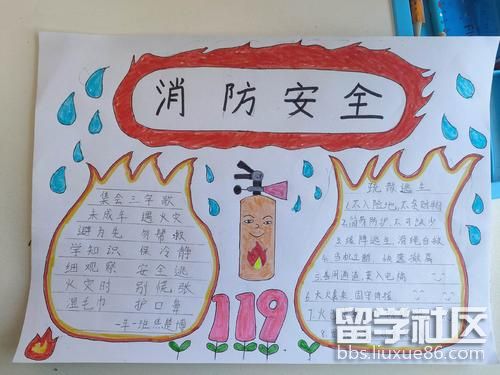 消防安全
集会三字歌
未成年 遇火灾
避为先 勿帮救
学知识 保冷静
细观察 安全逃
火灾时 别慌张
湿毛巾 护口鼻
一年一班
119
逃生
1.不入险地,不贪财物
2.简易防护,不可缺少
3.缓降逃生,滑绳自救
4.当机立断 快速撤离
5.善用通道,莫入电梯
6.大火袭来,固守待援
7.火
8.
留学社区
bbs.liuxue86.com